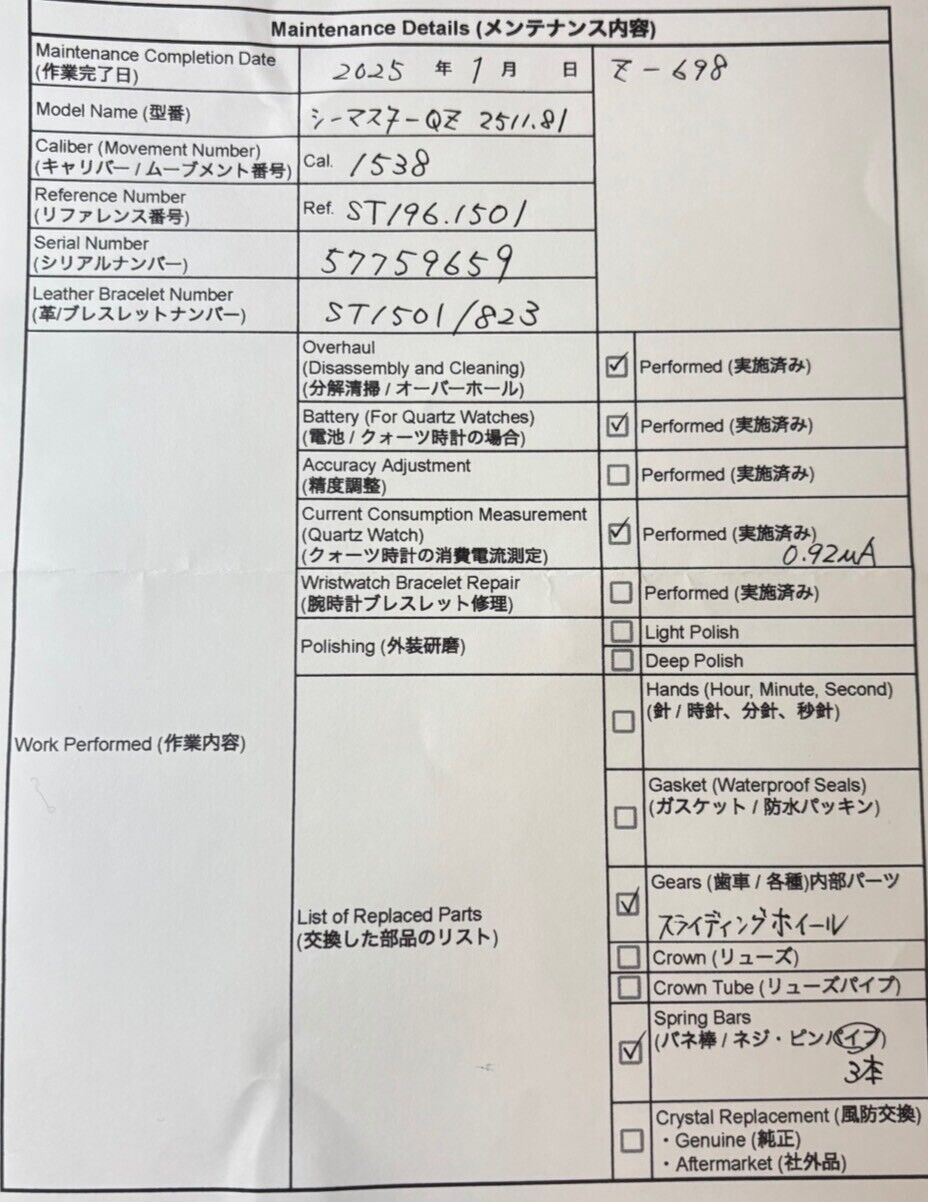 Maintenance Details (メンテナンス内容)
Maintenance Completion Date
(作業完了日)
2025 年 1 月 日
Z-698
Model Name (型番)
シーマスターQZ 2511.81
Caliber (Movement Number)
(キャリバー / ムーブメント番号)
Cal. 1538
Reference Number
(リファレンス番号)
Ref. ST196.1501
Serial Number
(シリアルナンバー)
57759659
Leather Bracelet Number
(革/ブレスレットナンバー)
ST1501/823
Work Performed (作業内容)
Overhaul
(Disassembly and Cleaning)
(分解清掃 / オーバーホール)
☑ Performed (実施済み)
Battery (For Quartz Watches)
(電池 / クォーツ時計の場合)
☑ Performed (実施済み)
Accuracy Adjustment
(精度調整)
☐ Performed (実施済み)
Current Consumption Measurement
(Quartz Watch)
(クォーツ時計の消費電流測定)
☑ Performed (実施済み)
0.92μA
Wristwatch Bracelet Repair
(腕時計ブレスレット修理)
☐ Performed (実施済み)
Polishing (外装研磨)
☐ Light Polish
☐ Deep Polish
List of Replaced Parts
(交換した部品のリスト)
☐ Hands (Hour, Minute, Second)
(針 / 時針、分針、秒針)
☐ Gasket (Waterproof Seals)
(ガスケット / 防水パッキン)
☑ Gears (歯車 / 各種)内部パーツ
スライディングホイール
☐ Crown (リューズ)
☐ Crown Tube (リューズパイプ)
☑ Spring Bars
(バネ棒 / ネジ・ピンパイプ)
3本
☐ Crystal Replacement (風防交換)
・Genuine (純正)
・Aftermarket (社外品)